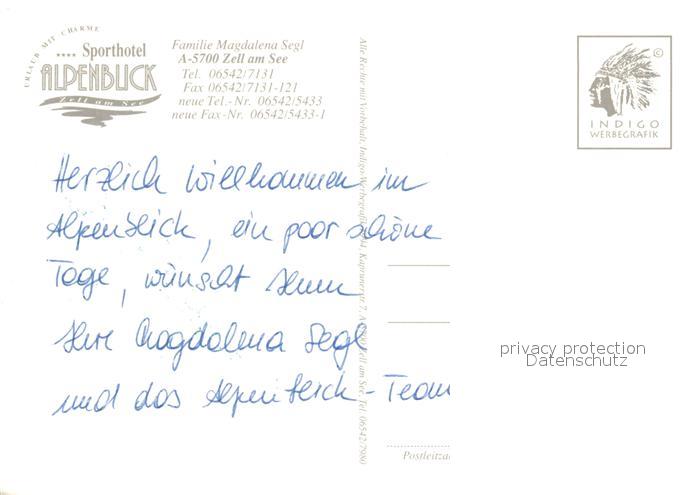 URLAUB MIT CHARME
**** Sporthotel
ALPENBLICK
Zell am See
Familie Magdalena Segl
A-5700 Zell am See
Tel. 06542/7131
Fax 06542/7131-121
neue Tel.-Nr. 06542/5433
neue Fax-Nr. 06542/5433-1
©
INDIGO
WERBEGRAFIK
Herzlich willkommen im
Alpenblick, ein paar schöne
Tage, wünscht Ihnen
Ihre Magdalena Segl
und das Alpenblick-Team
Alle Rechte mit Vorbehalt, Indigo Werbegrafik
Zell am See, Tel. 06542/7980
privacy protection
Datenschutz
Postleitza